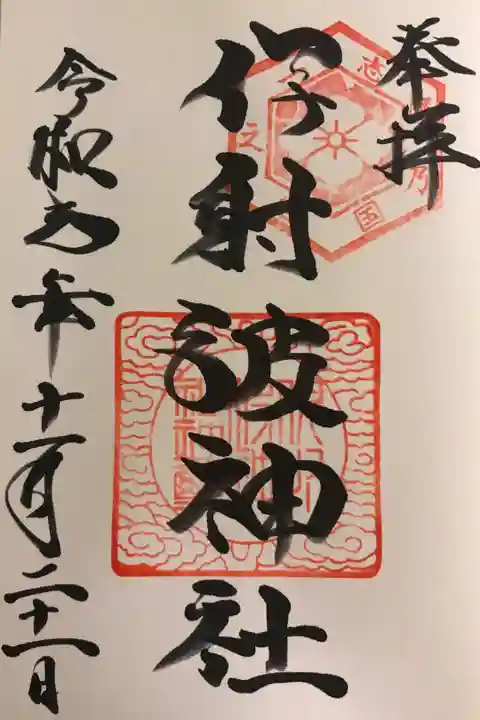 奉拝
伊射波神社
令和五年十一月二十一日